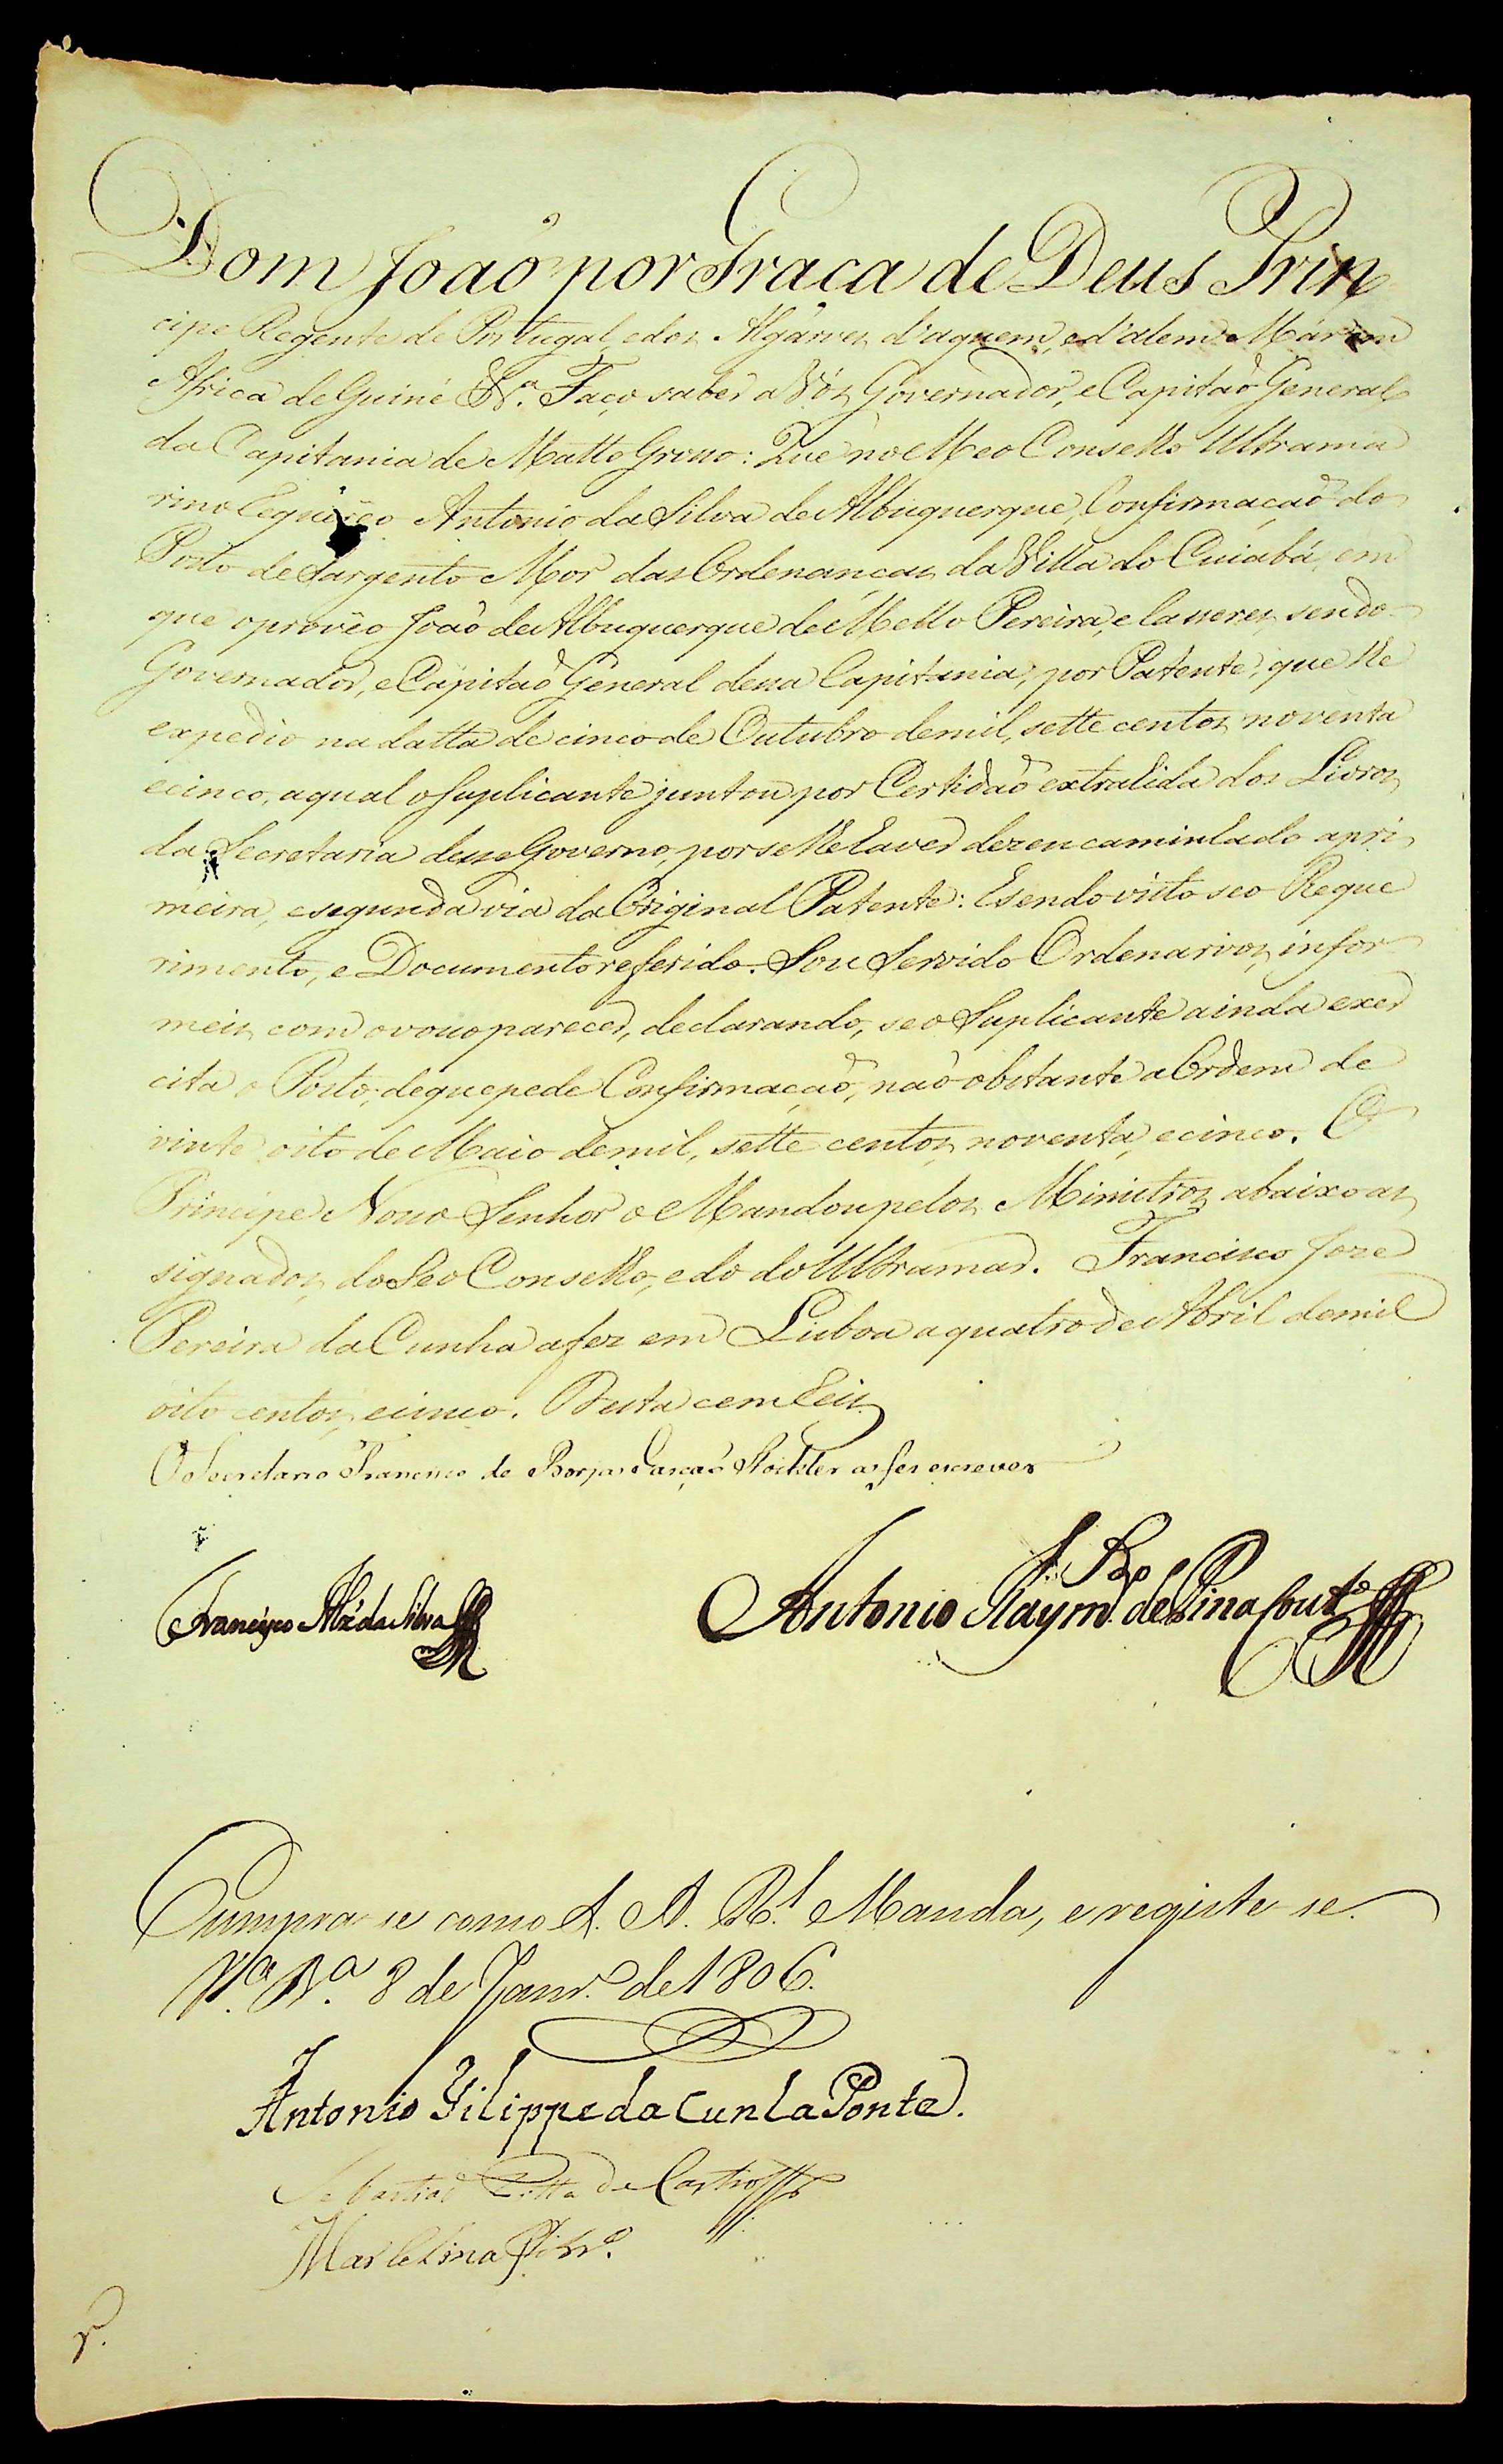 Dom Joaõ por Graça de Deus Prin
cipe Regente de Portugal, e dos Algarves, d'aquem, e d'alem Már em
Africa de Guiné &.ª Faço saber a Vós Governador, e Capitaõ General
da Capitania de Matto Grosso: Que no Meo Conselho Ultrama
rino requereo Antonio da Silva de Albuquerque, Confirmaçaõ do
Posto de Sargento Mor das Ordenanças da Villa do Cuiabá, em
que o proveo Joaõ de Albuquerque de Mello Pereira, e Casseres, sendo
Governador, e Capitaõ General dessa Capitania, por Patente, que lhe
expedio na datta de cinco de Outubro de mil, sette centos, noventa
e cinco, a qual o Suplicante juntou por Certidaõ extrahida dos Livros
da Secretaria desse Governo, por se lhe haver dezencaminhado a pri
meira, e segunda via da Original Patente: E sendo visto seo Reque
rimento, e Documento referido. Sou Servido Ordenarvos, infor
meis com o vosso parecer, declarando, se o Suplicante ainda exer
cita o Posto, de que pede Confirmaçaõ, naõ obstante a Ordem de
vinte oito de Maio de mil, sette centos, noventa, e cinco. O
Principe Nosso Senhor o Mandou pelos Ministros abaixo as
signados, do Seo Conselho, e do do Ultramar. Francisco Joze
Pereira da Cunha a fez em Lisboa a quatro de Abril de mil
oito centos, e cinco. Desta cem reis
O Secretario Francisco de Borja Garçaõ Stockler a fez escrever
Francisco Alz' da Silva
Antonio Raym.do de Pina Cout.º
Cumpra-se como S. A. R.l Manda, e registe-se.
V.ª B.ª 8 de Janr.º de 1806.
Antonio Filippe da Cunha Ponte.
Sebastiaõ Pitta de Castro